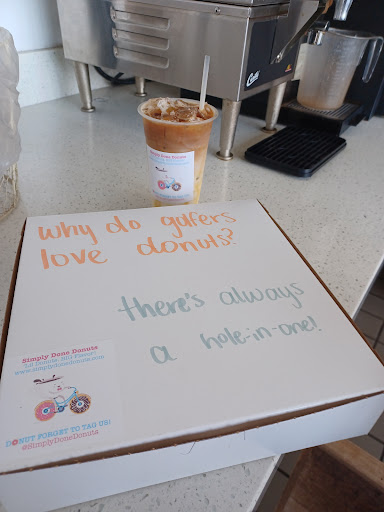 Why do golfers
love donuts?
there's always
a hole-in-one!
Simply Done Donuts
www.simplydonedonuts.com
DONUT FORGET TO TAG US!
@SimplyDoneDonuts
Simply Done Donuts
Curtis